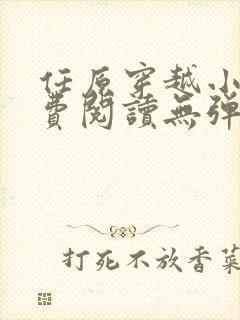 任原穿越小
費閱讀無彈
打死不放香菜